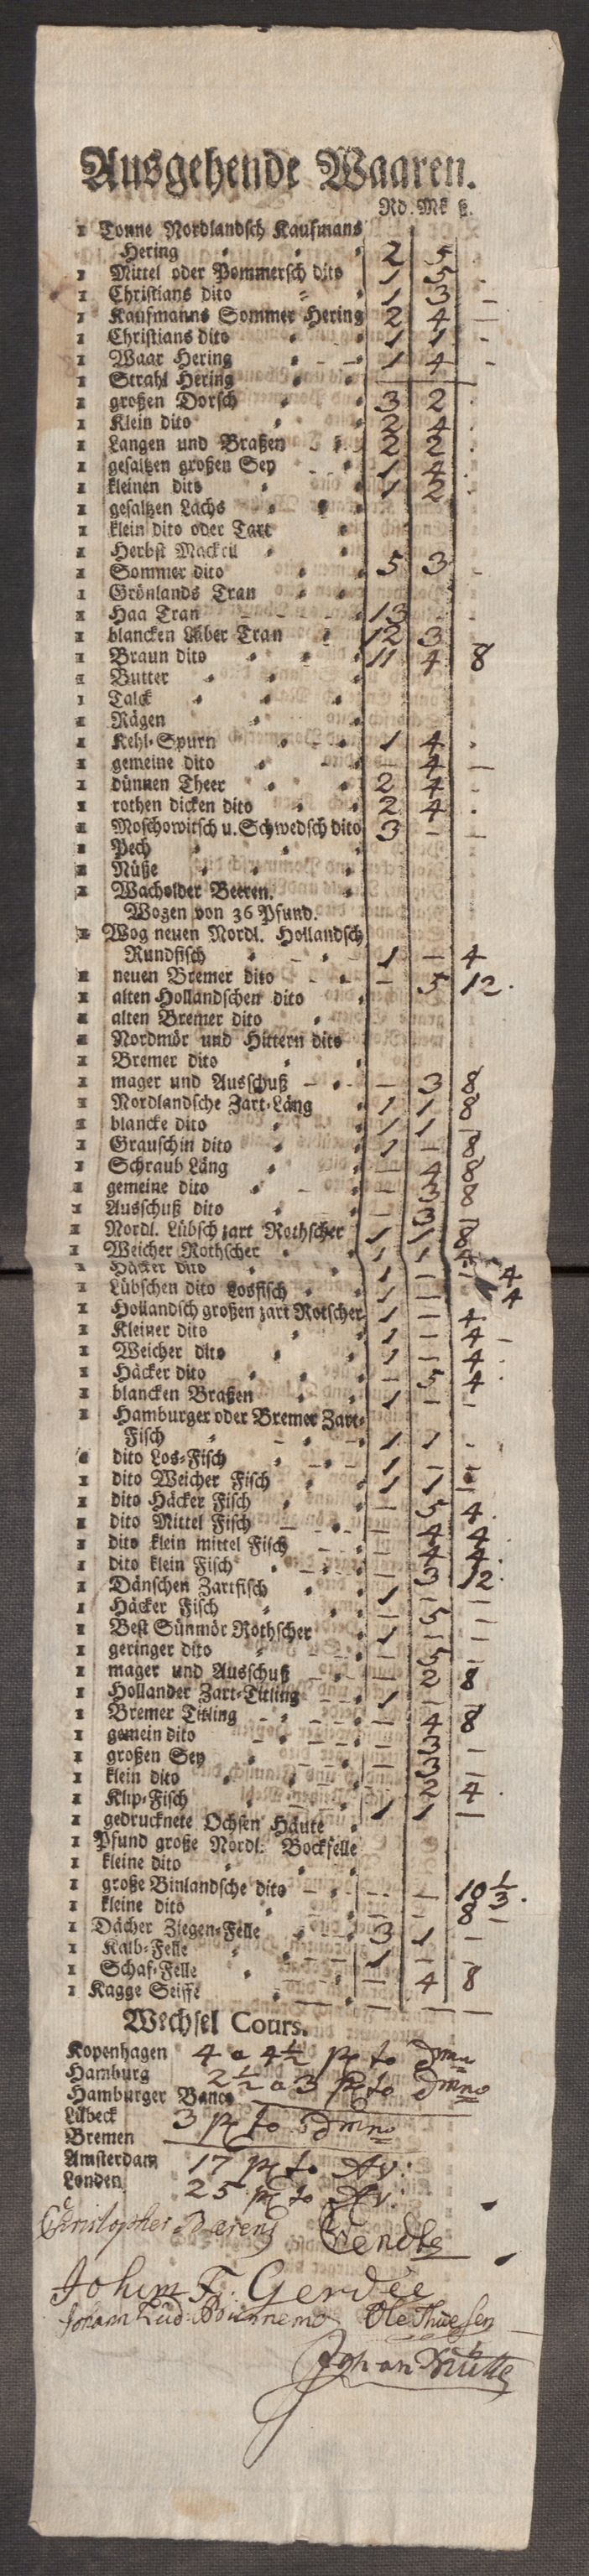 Ausgehende Waaren.
Rd. Mk ß.
1 Tonne Nordlandsch Kaufmans
Hering 2 5
1 Mittel oder Pommersch dito 1 5
1 Christians dito 1 3 –
1 Kaufmanns Sommer Hering 2 4 –
1 Christians dito 1 1
1 Waar Hering 1 4 –
1 Strahl Hering
1 großen Dorsch 3 2
1 Klein dito 2 4
1 Langen und Braßen 2 2
1 gesaltzen großen Sey 1 4
1 kleinen dito 1 2
1 gesaltzen Lachs
1 klein dito oder Tart
1 Herbst Mackril
1 Sommer dito 5 3 –
1 Grönlands Tran
1 Haa Tran 13
1 blancken Läber Tran 12 3
1 Braun dito 11 4 8
1 Butter
1 Talck
1 Rägen
1 Kehl-Spurn 1 4
1 gemeine dito – 4 –
1 dünnen Theer 2 4
1 rothen dicken dito 2 4
1 Moschowitsch u. Schwedsch dito 3 – –
1 Pech
1 Nüße
1 Wacholder Beeren.
Wogen von 36 Pfund.
1 Wog neuen Nordl. Hollandsch
Rundfisch 1 – 4
1 neuen Bremer dito – 5 12.
1 alten Hollandschen dito
1 alten Bremer dito
1 Nordmör und Hittern dito
1 Bremer dito
1 mager und Ausschuß – 3 8
1 Nordlandsche Zart-Läng 1 1 8
1 blancke dito 1 1 –
1 Grauschin dito 1 – 8
1 Schraub Läng – 4 8
1 gemeine dito – 3 8
1 Ausschuß dito – 3 –
1 Nordl. Lübsch zart Rothscher 1 1 8
1 Weicher Rothscher 1 1 4
1 Häcker dito 1 – 4
1 Lübschen dito Losfisch 1 – 4
1 Hollandsch großen zart Rotscher 1 – 4
1 Kleiner dito 1 – 4 –
1 Weicher dito 1 – 4
1 Häcker dito – 5 4
1 blancken Braßen 1 – –
1 Hamburger oder Bremer Zart-
Fisch 1 1
1 dito Los-Fisch 1 1
1 dito Weicher Fisch 1 1 –
1 dito Häcker Fisch – 5 4
1 dito Mittel Fisch – 4 4
1 dito klein mittel Fisch – 4 4
1 dito klein Fisch – 3 12
1 Dänschen Zartfisch 1 – –
1 Häcker Fisch – 5 –
1 Best Sünmör Rothscher 1 – –
1 geringer dito – 5
1 mager und Ausschuß – 2 8
1 Hollander Zart-Titling 1 –
1 Bremer Titling – 4 8
1 gemein dito – 3
1 großen Sey – 3 –
1 klein dito – 2 4
1 Klip-Fisch 1 1 –
1 gedrucknete Ochsen Häute
1 Pfund große Nordl. Bockfelle
1 kleine dito
1 große Binlandsche dito – – 10 1/3.
1 kleine dito – – 8 –
1 Dächer Ziegen-Felle 3 1 –
1 Kalb-Felle 1 –
1 Schaf-Felle – 4 8
1 Kagge Seiffe – – –
Wechsel Cours.
Kopenhagen 4 a 4 1/2 pc to Dmno
Hamburg 2 1/2 a 3 pc to Dmno
Hamburger Banco
Lübeck 3 pc to Dmno
Bremen
Amsterdam 17 pc to Av:
Londen 25 pc to Av:
Christopher
Johan F. Gerdee
Johan Lud: Ole Thuesen
Johan